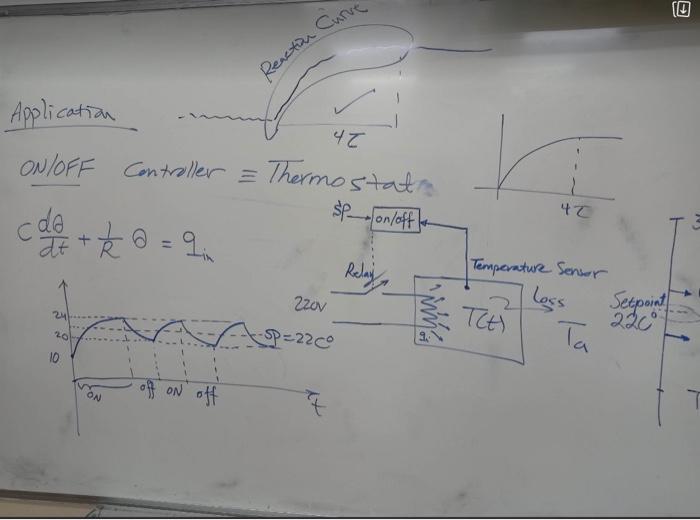 Reaction Curve
Application
4τ
ON/OFF Controller ≡ Thermostat
4τ
SP
on/off
C dθ/dt + 1/R θ = q_in
Relay
Temperature Sensor
220V
T(t)
Loss
Ta
q_i
Setpoint
22C°
3
T
24
20
10
SP=22C°
ON
off
ON
off
t